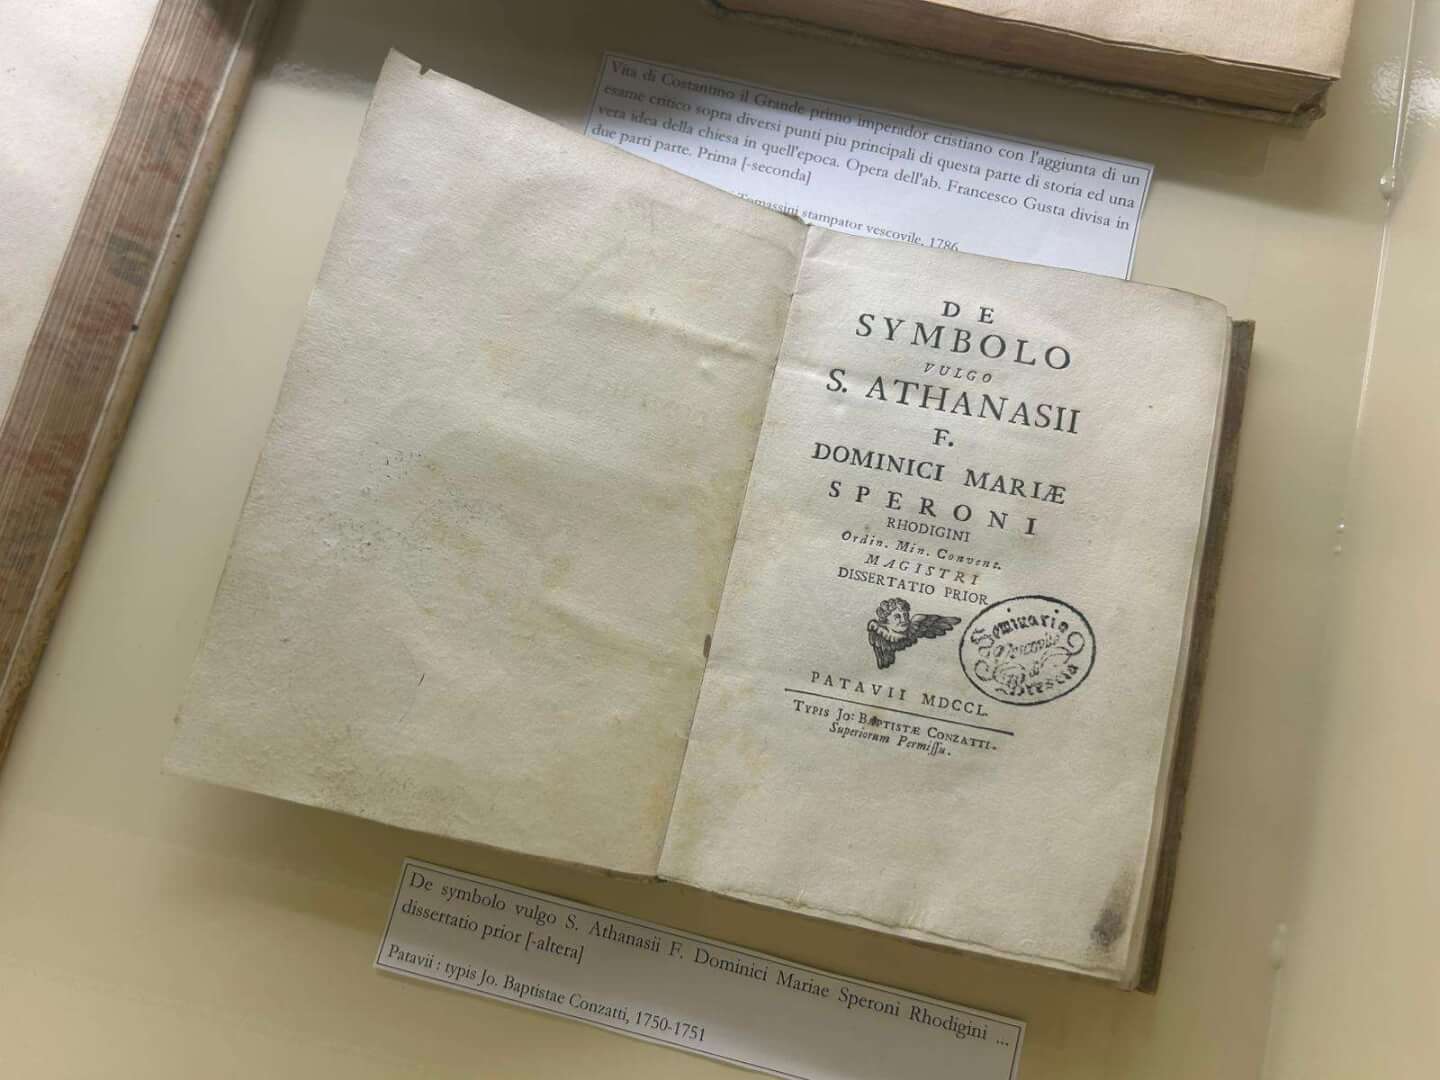 Vita di Costantino il Grande primo imperador cristiano con l'aggiunta di un
esame critico sopra diversi punti piu principali di questa parte di storia ed una
vera idea della chiesa in quell'epoca. Opera dell'ab. Francesco Gusta divisa in
due parti parte. Prima [-seconda]
Tomassini stampator vescovile, 1786
DE
SYMBOLO
VULGO
S. ATHANASII
F.
DOMINICI MARIÆ
SPERONI
RHODIGINI
Ordin. Min. Convent.
MAGISTRI
DISSERTATIO PRIOR
Seminario
Vescovile
di
Brescia
PATAVII MDCCL.
TYPIS JO: BAPTISTÆ CONZATTI.
Superiorum Permissu.
De symbolo vulgo S. Athanasii F. Dominici Mariae Speroni Rhodigini ...
dissertatio prior [-altera]
Patavii : typis Jo. Baptistae Conzatti, 1750-1751